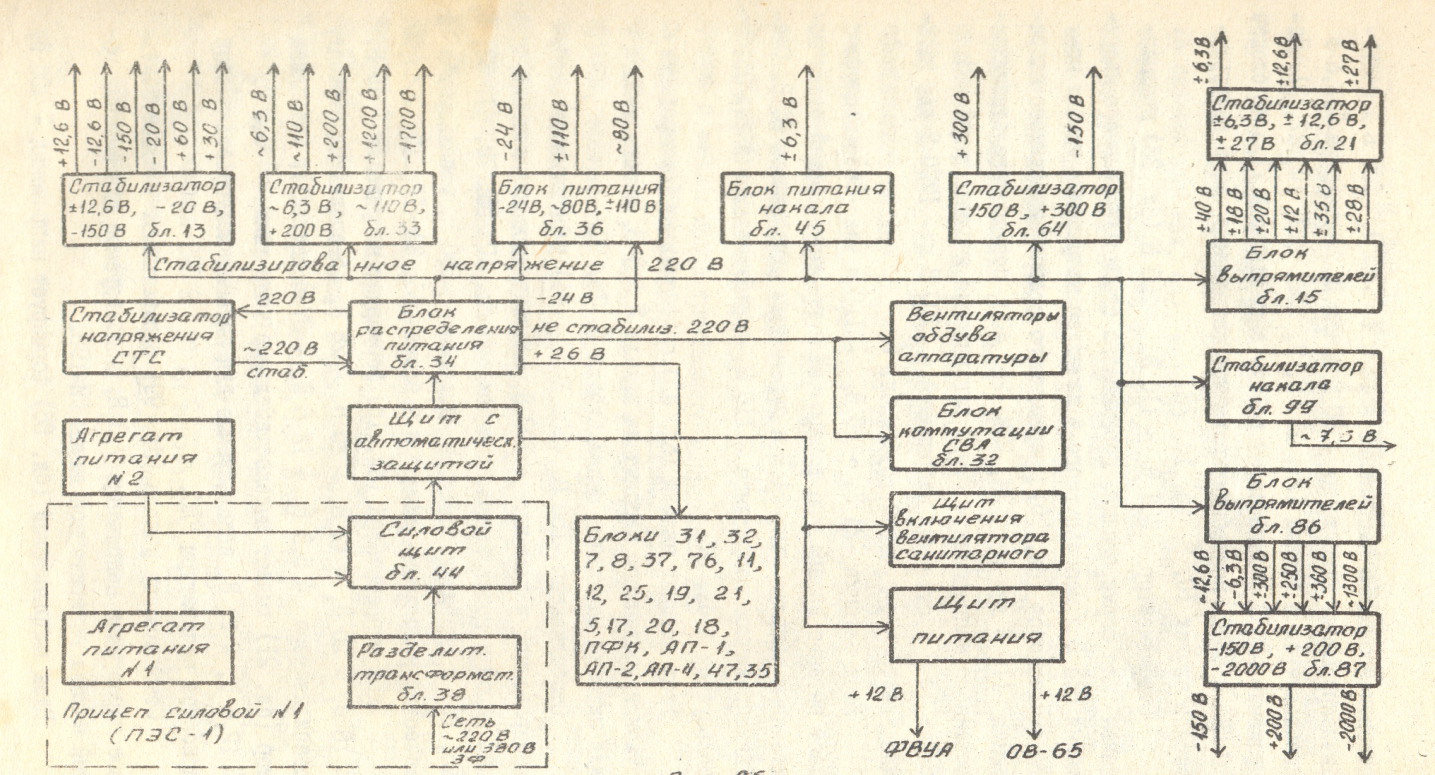 +12,6 В
-12,6 В
-150 В
-20 В
+60 В
+30 В
~6,3 В
~110 В
+200 В
+1200 В
-1700 В
-24 В
±110 В
~80 В
±6,3 В
+300 В
-150 В
±6,3В
±12,6В
±27В
Стабилизатор
±12,6 В, -20 В,
-150 В бл. 13
Стабилизатор
~6,3 В, ~110 В,
+200 В бл. 33
Блок питания
-24В, ~80В, ±110 В
бл. 36
Блок питания
накала
бл. 45
Стабилизатор
-150 В, +300 В
бл. 64
Стабилизатор
±6,3В, ±12,6 В,
±27 В бл. 21
±40 В
±18 В
±20 В
±12 В
±28 В
Блок
выпрямителей
бл. 15
Стабилизированное напряжение 220 В
Стабилизатор
напряжения
СТС
220 В
~220 В
стаб.
Блок
распределения
питания
бл. 34
-24 В
не стабилиз. 220 В
+26 В
Вентиляторы
обдува
аппаратуры
Стабилизатор
накала
бл. 99
Агрегат
питания
№2
Щит с
автоматическ.
защитой
Блок
коммутации
СВА
бл. 32
Блок
выпрямителей
бл. 86
Силовой
щит
бл. 44
Блоки 31, 32,
7, 8, 37, 76, 11,
12, 25, 19, 21,
5,17, 20, 18,
ПФК, АП-1,
АП-2, АП-4, 47,35
Щит
включения
вентилятора
санитарного
~12,6 В
~6,3 В
±300 В
±250 В
±360 В
~1300 В
Агрегат
питания
№1
Разделит.
трансформат.
бл. 38
Щит
питания
Стабилизатор
-150В, +200 В,
-2000В бл.87
Прицеп силовой №1
(ПЭС-1)
Сеть
~220 В
или 380 В
3Ф
+12 В
+12 В
ФВУА
ОВ-65
-150 В
+200В
-2000В